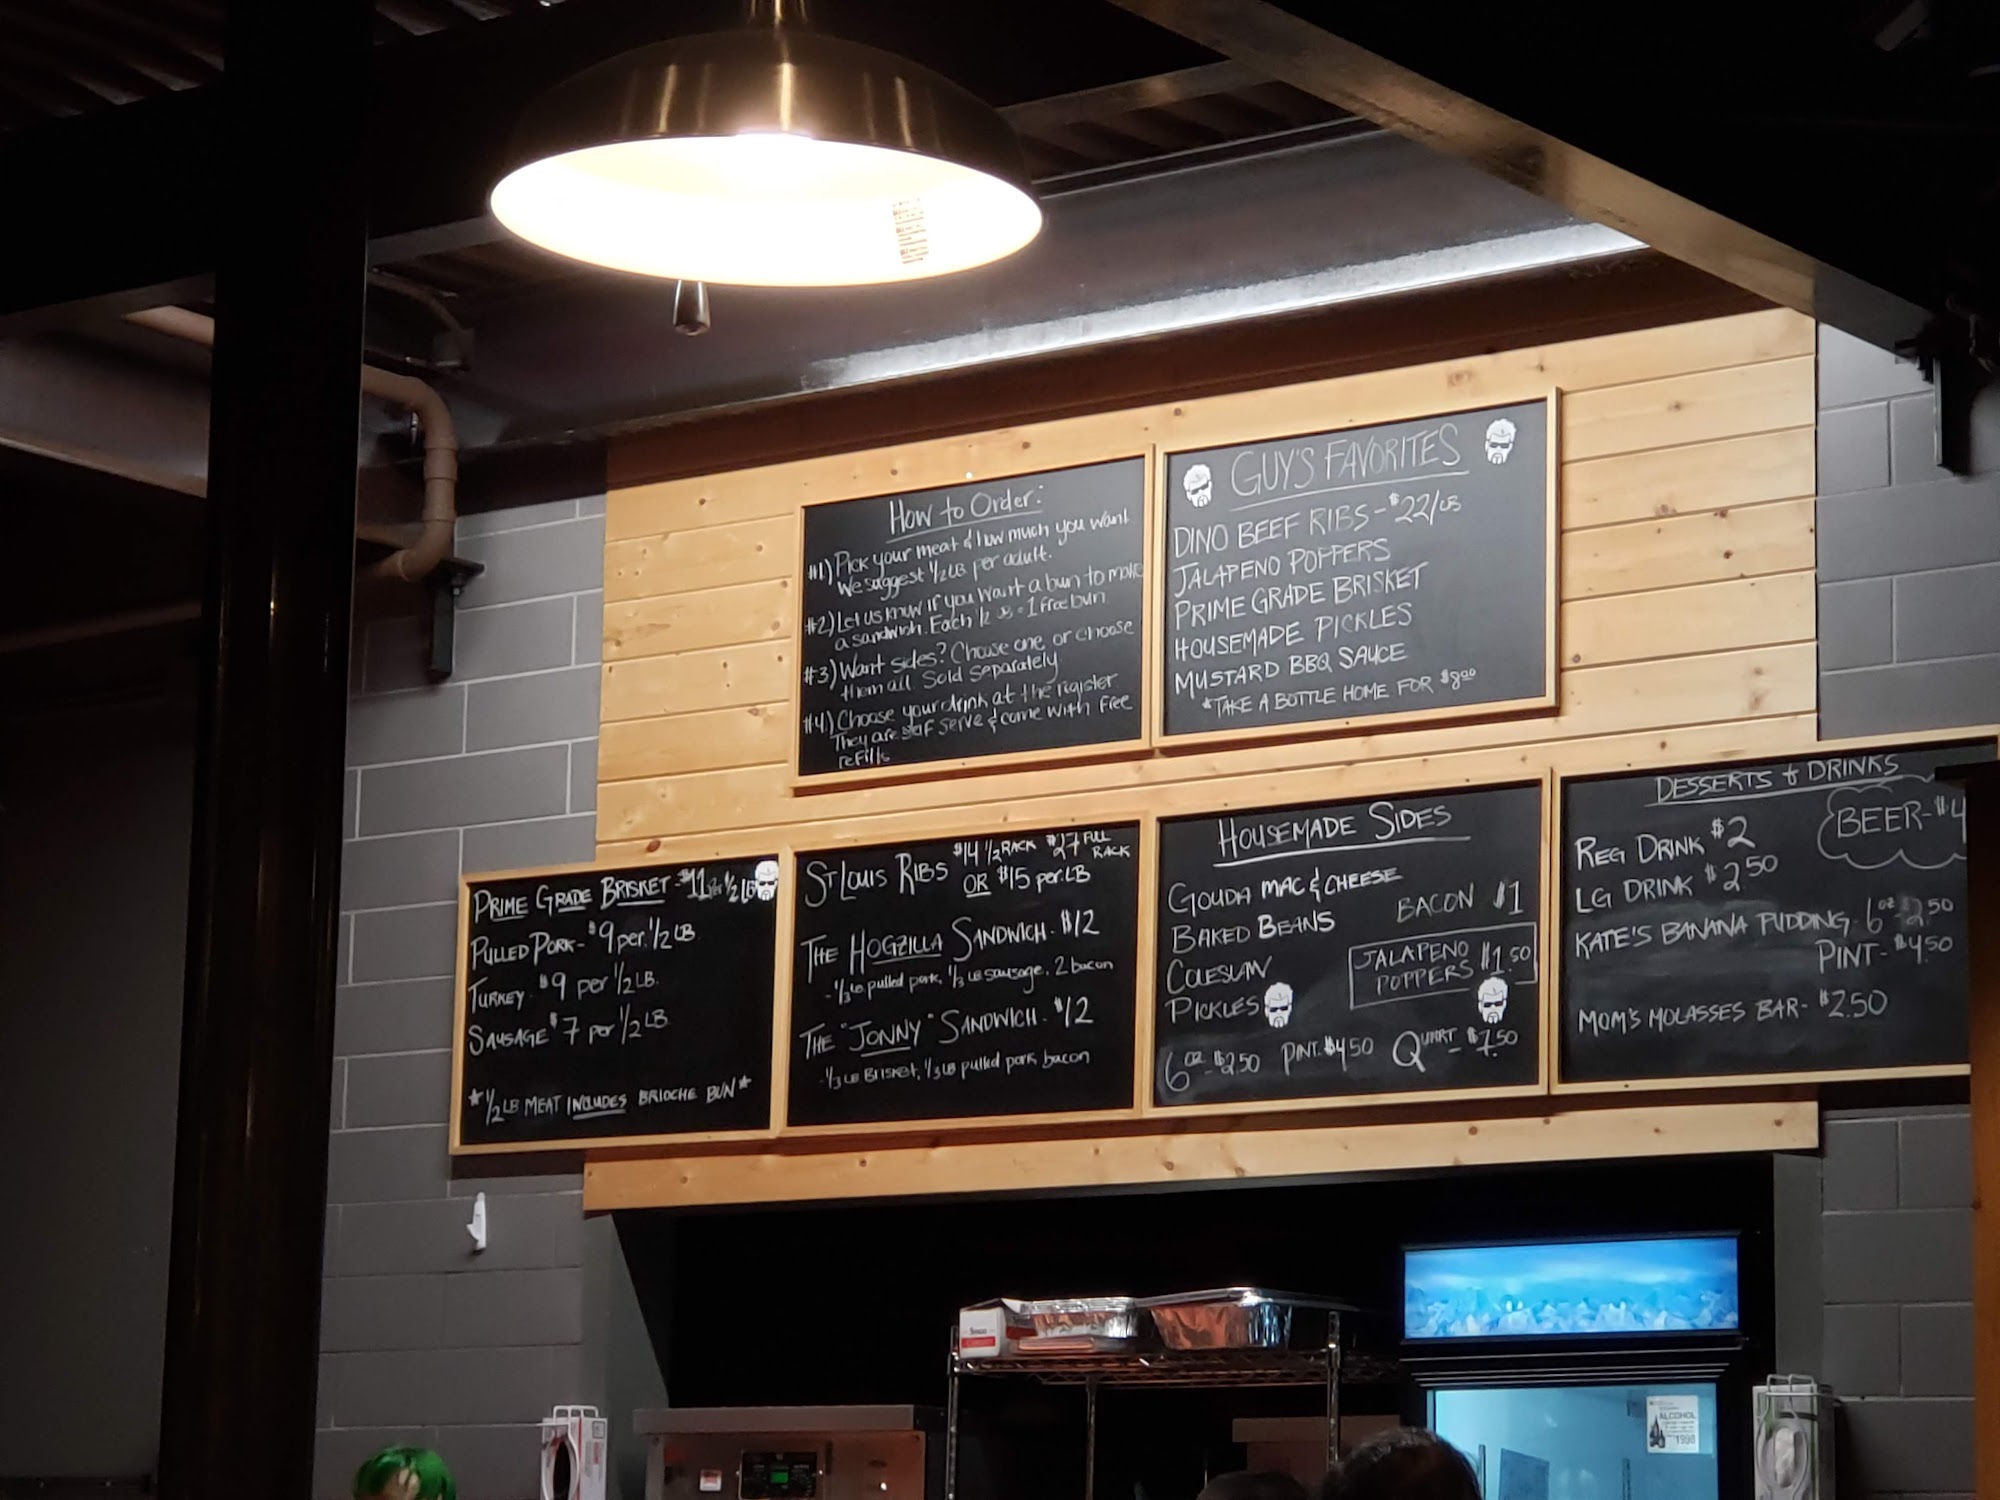 How to Order:
#1) Pick your meat & how much you want
We suggest 1/2 LB per adult.
#2) Let us know if you want a bun to make
a sandwich. Each 1/2 LB = 1 free bun
#3) Want sides? Choose one or choose
them all. Sold separately
#4) Choose your drink at the register
They are self serve & come with free
refills
GUY'S FAVORITES
DINO BEEF RIBS - $22/LB
JALAPENO POPPERS
PRIME GRADE BRISKET
HOUSEMADE PICKLES
MUSTARD BBQ SAUCE
*TAKE A BOTTLE HOME FOR $8.00
PRIME GRADE BRISKET - $11 Per 1/2 LB
PULLED PORK - $9 per 1/2 LB
TURKEY - $9 per 1/2 LB.
SAUSAGE $7 per 1/2 LB
*1/2 LB MEAT INCLUDES BRIOCHE BUN*
ST LOUIS RIBS $14 1/2 RACK $27 FULL RACK
OR $15 per LB
THE HOGZILLA SANDWICH - $12
- 1/3 LB pulled pork, 1/3 LB sausage, 2 bacon
THE "JONNY" SANDWICH - $12
- 1/3 LB BRISKET, 1/3 LB pulled pork, bacon
HOUSEMADE SIDES
GOUDA MAC & CHEESE
BAKED BEANS
COLESLAW
PICKLES
BACON $1
JALAPENO
POPPERS $1.50
6 OZ - $2.50 PINT - $4.50 QUART - $7.50
DESSERTS & DRINKS
BEER - $4
REG DRINK $2
LG DRINK $2.50
KATE'S BANANA PUDDING - 6 OZ $2.50
PINT - $4.50
MOM'S MOLASSES BAR - $2.50
ALCOHOL
1998